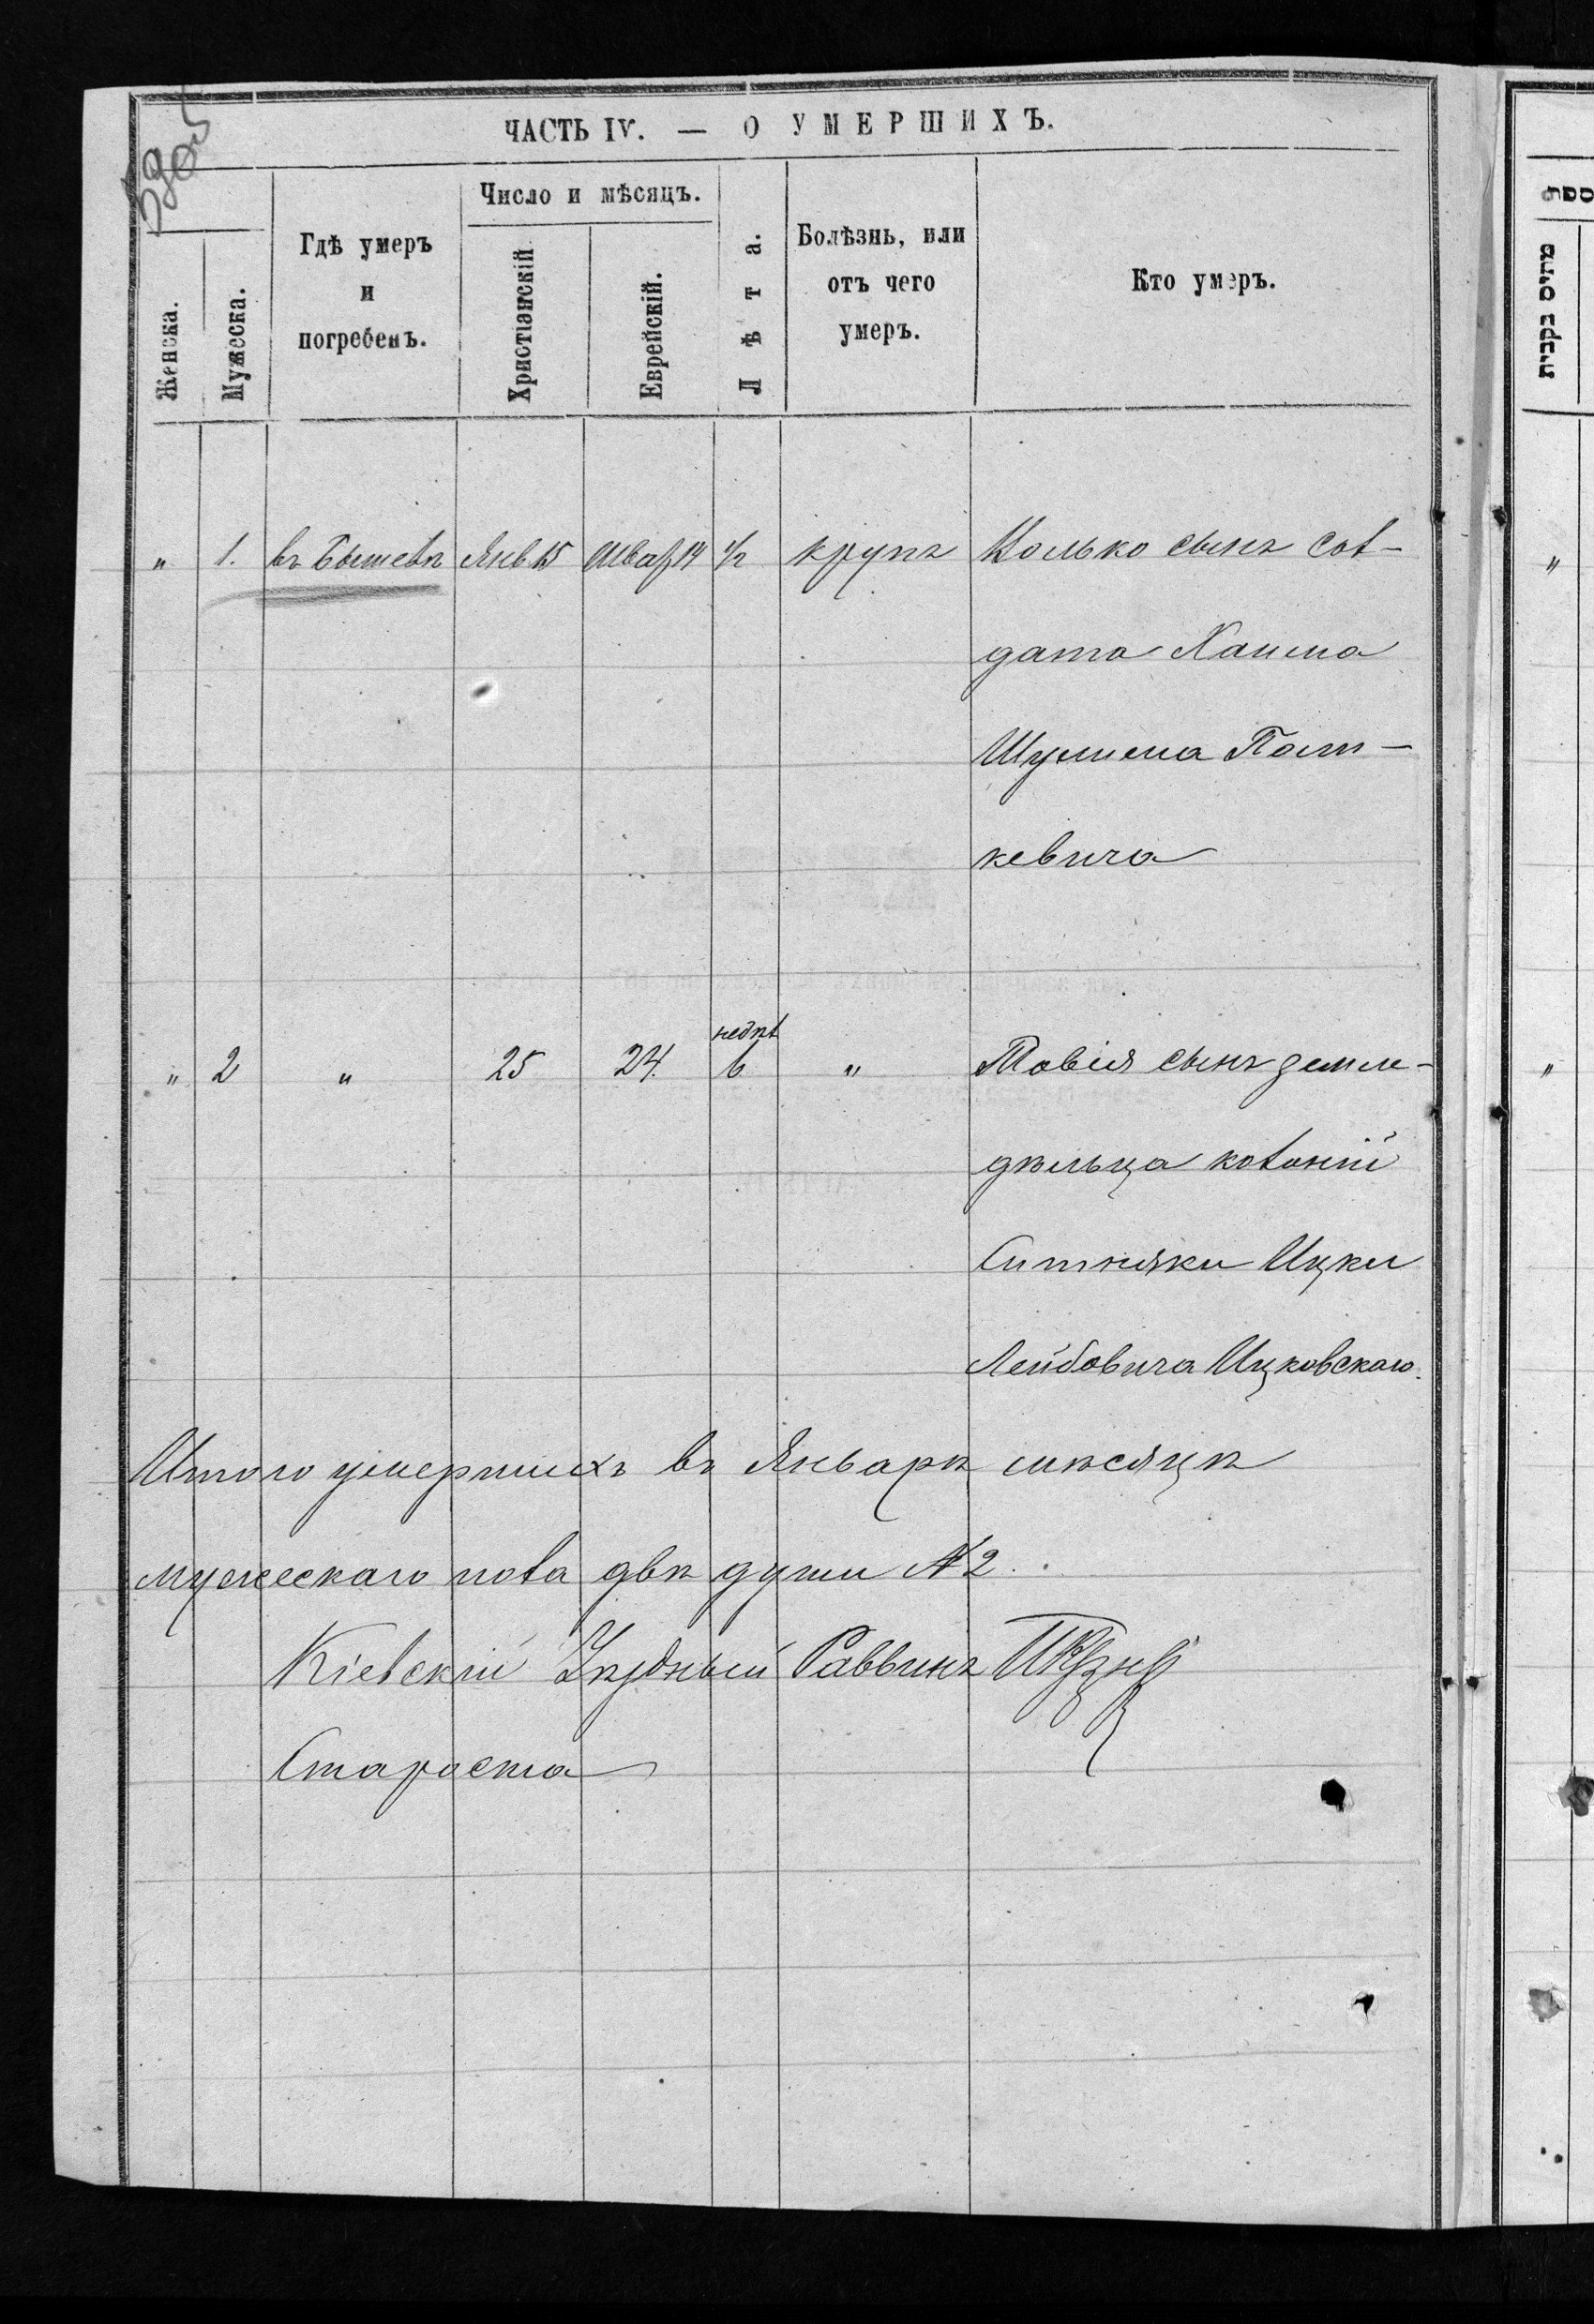 ЧАСТЬ IV. — О УМЕРШИХЪ.
Женска.
Мужеска.
Гдѣ умеръ
и
погребенъ.
Число и мѣсяцъ.
Христіанскій
Еврейскій.
Лѣта.
Болѣзнь, или
отъ чего
умеръ.
Кто умеръ.
" 1. въ Бышевѣ Янв 15 Шват 14 1/2 крупъ сынъ сол-
дата Хаима
Шулима Пат-
кевича
недѣл
" 2 " 25 24. 6 " Товія сынъ земле-
дѣльца колоніи
Ситняки Ицки
Лейбовича Ицковскаго.
Итого умершихъ въ Январѣ мѣсяцѣ
мужескаго пола двѣ души №2.
Кіевскій Уѣздный Раввинъ
Староста
מתים בקבית
"
"